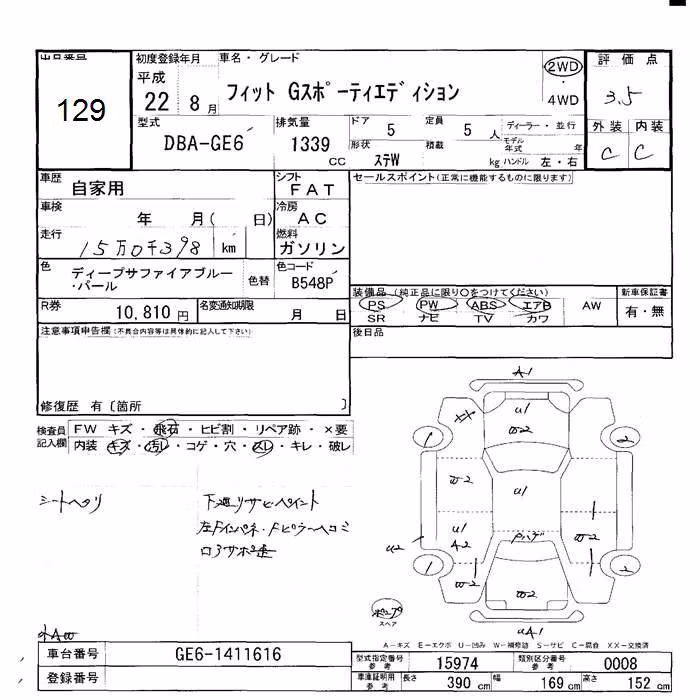 出品番号
129
初度登録年月
平成
22 8月
車名・グレード
フィット Gスポーティエディション
2WD
4WD
評価点
3.5
外装 内装
C C
型式
DBA-GE6
排気量
1339
CC
ドア
5
定員
5 人
形状
ステW
積載
kg
ディーラー・並行
モデル年式 年
ハンドル 左・右
車歴
自家用
シフト
FAT
車検
年 月( 日)
冷房
AC
走行
15万0千398 km
燃料
ガソリン
色
ディープサファイアブルー
・パール
色替
色コード
B548P
R券
10,810 円
名変通知期限
月 日
セールスポイント(正常に機能するものに限ります)
装備品 (純正品に限り○をつけてください)
PS PW ABS エアB AW
SR ナビ TV カワ
新車保証書
有・無
後日品
注意事項申告欄(不具合内容等は具体的に記入して下さい)
修復歴 有〔箇所 〕
検査員
記入欄
FW キズ・飛石・ヒビ割・リペア跡・×要
内装 キズ・汚レ・コゲ・穴・スレ・キレ・破レ
シートヘタリ
下廻リサビペイント
A1
U1
W2
1
2
W2
U1
U1
A2
U2
W2
W2
1
2
W2
W2
UA1
スペア
A-キズ E-エクボ U-凹み W-補修跡 S-サビ C-腐食 XX-交換済
車台番号
GE6-1411616
登録番号
型式指定番号
参考
15974
類別区分番号
参考
0008
車庫証明用
参考
長さ
390 cm
幅
169 cm
高さ
152 cm